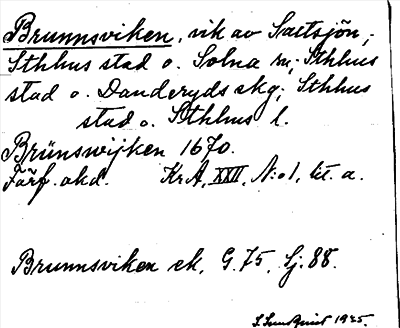 Brunnsviken, vik av Saltsjön,
Sthlms stad o. Solna sn; Sthlms
stad o. Danderyds skg; Sthlms
stad o. Sthlms l.
Brünswijken 1670.
Förf. okd. KrA, XXII, N:o 1, lit. a.
Brunnsviken ek, G. 75, Sj: 88.
S. Lundquist 1925.